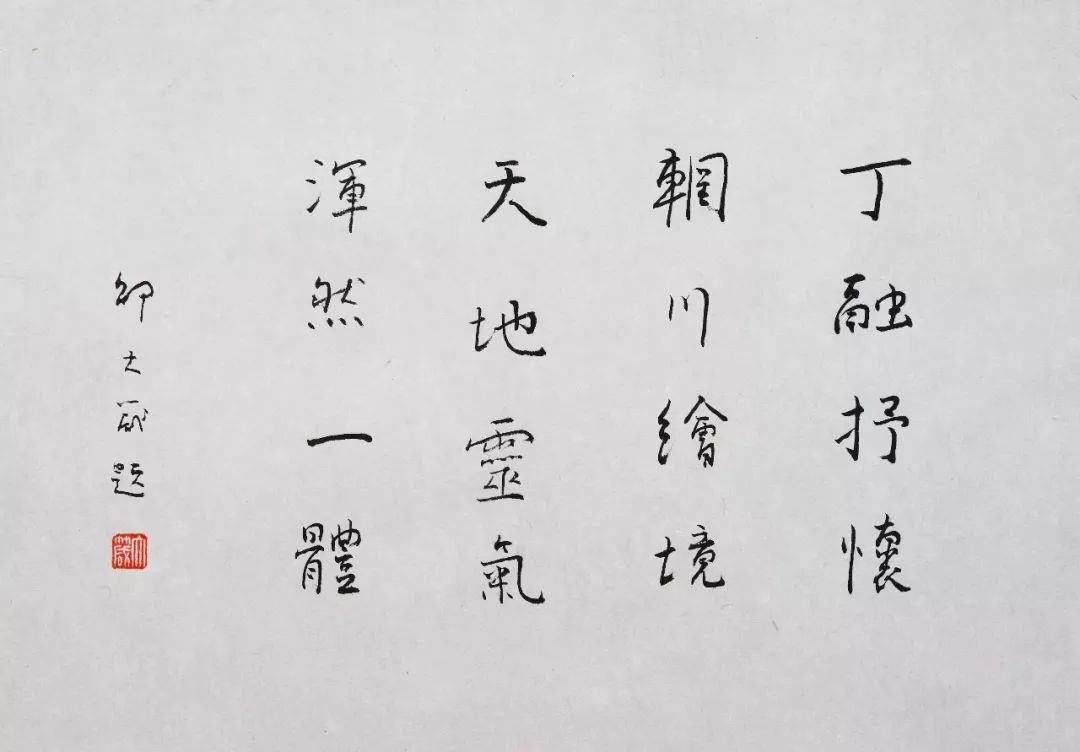 丁融抒懷
輞川繪境
天地靈氣
渾然一體
邵大箴題
大箴